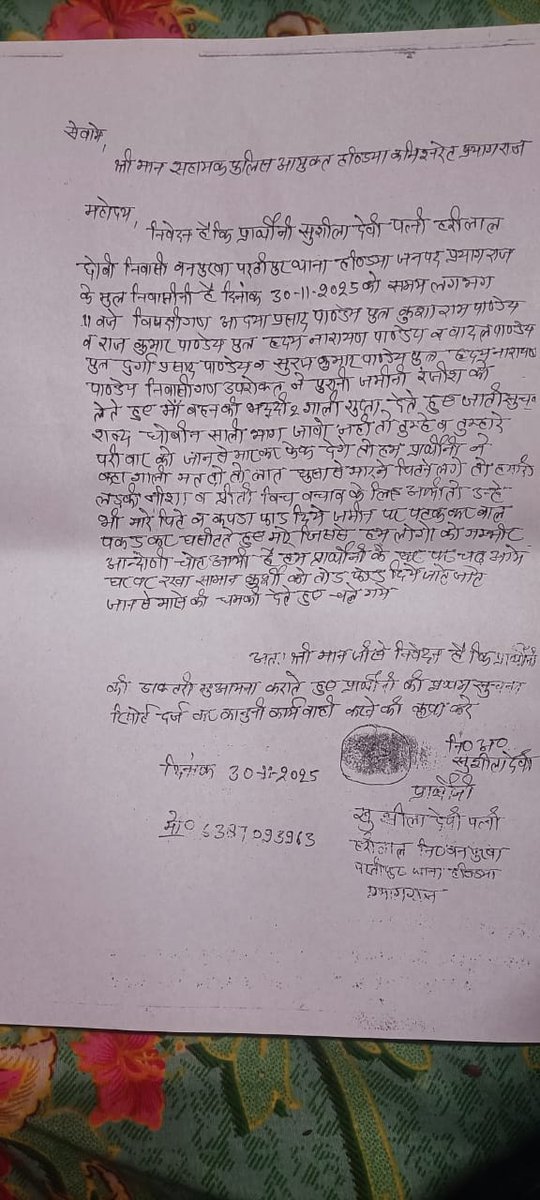 सेवामे,
श्री मान सहायक पुलिस आयुक्त हण्डिया कमिश्नरेट प्रयागराज
महोदय,
निवेदन है कि प्रार्थीनी सुशीला देवी पत्नी हरीलाल
धोबी निवासी बनपुरवा परतीपुर थाना हण्डिया जनपद प्रयागराज
के मुल निवासीनी है दिनांक 30-11-2025 को समय लगभग
11 बजे विपक्षीगण आदया प्रसाद पाण्डेय पुत्र कुशा राम पाण्डेय
व राज कुमार पाण्डेय पुत्र हृदय नारायण पाण्डेय व बादल पाण्डेय
पुत्र दुर्गा प्रसाद पाण्डेय व सुरज कुमार पाण्डेय पुत्र हृदय नारायण
पाण्डेय निवासीगण उपरोक्त ने पुरानी जमीनी रंजीश को
लेते हुए माँ बहन की भद्दी २ गाली गुप्ता देते हुए जाती सुचक
शब्द धोबीन साली भाग जावो नही तो तुम्हे व तुम्हारे
परी वार को जान से मारकर फेक देगे तो हम प्रार्थीनी ने
कहा गाली मत दो तो लात घुसा से मारने पिटने लगे तो हमारी
लडकी नीशा व प्रीती विच बचाव के लिए आयी तो उन्हे
भी मारे पिटे व कपडा फाड दिये जमीन पर पटक कर बाल
पकड कर घसीटते हुए मारे जिससे हम लोगो को गम्भीर
आन्दरोणी चोट आयी है हम प्रार्थीनी के घर पर चढ आये
घर पर रखा सामान कुर्सी को तोड फोड दिये जाते जाते
जान से मारने की धमकी देते हुए चले गये
अतः श्री मान जी से निवेदन है कि प्रार्थीनी
की डाक्टरी मुआयना कराते हुए प्रार्थीनी की प्रथम सुचना
रिपोर्ट दर्ज कर कानुनी कार्यवाही करने की कृपा करे
नि० अ०
सुशीला देवी
दिनांक 30-11-2025
प्रार्थीनी
मो० 6387093963
सुशीला देवी पत्नी
हरीलाल नि० बनपुरवा
परतीपुर थाना हण्डिया
प्रयागराज